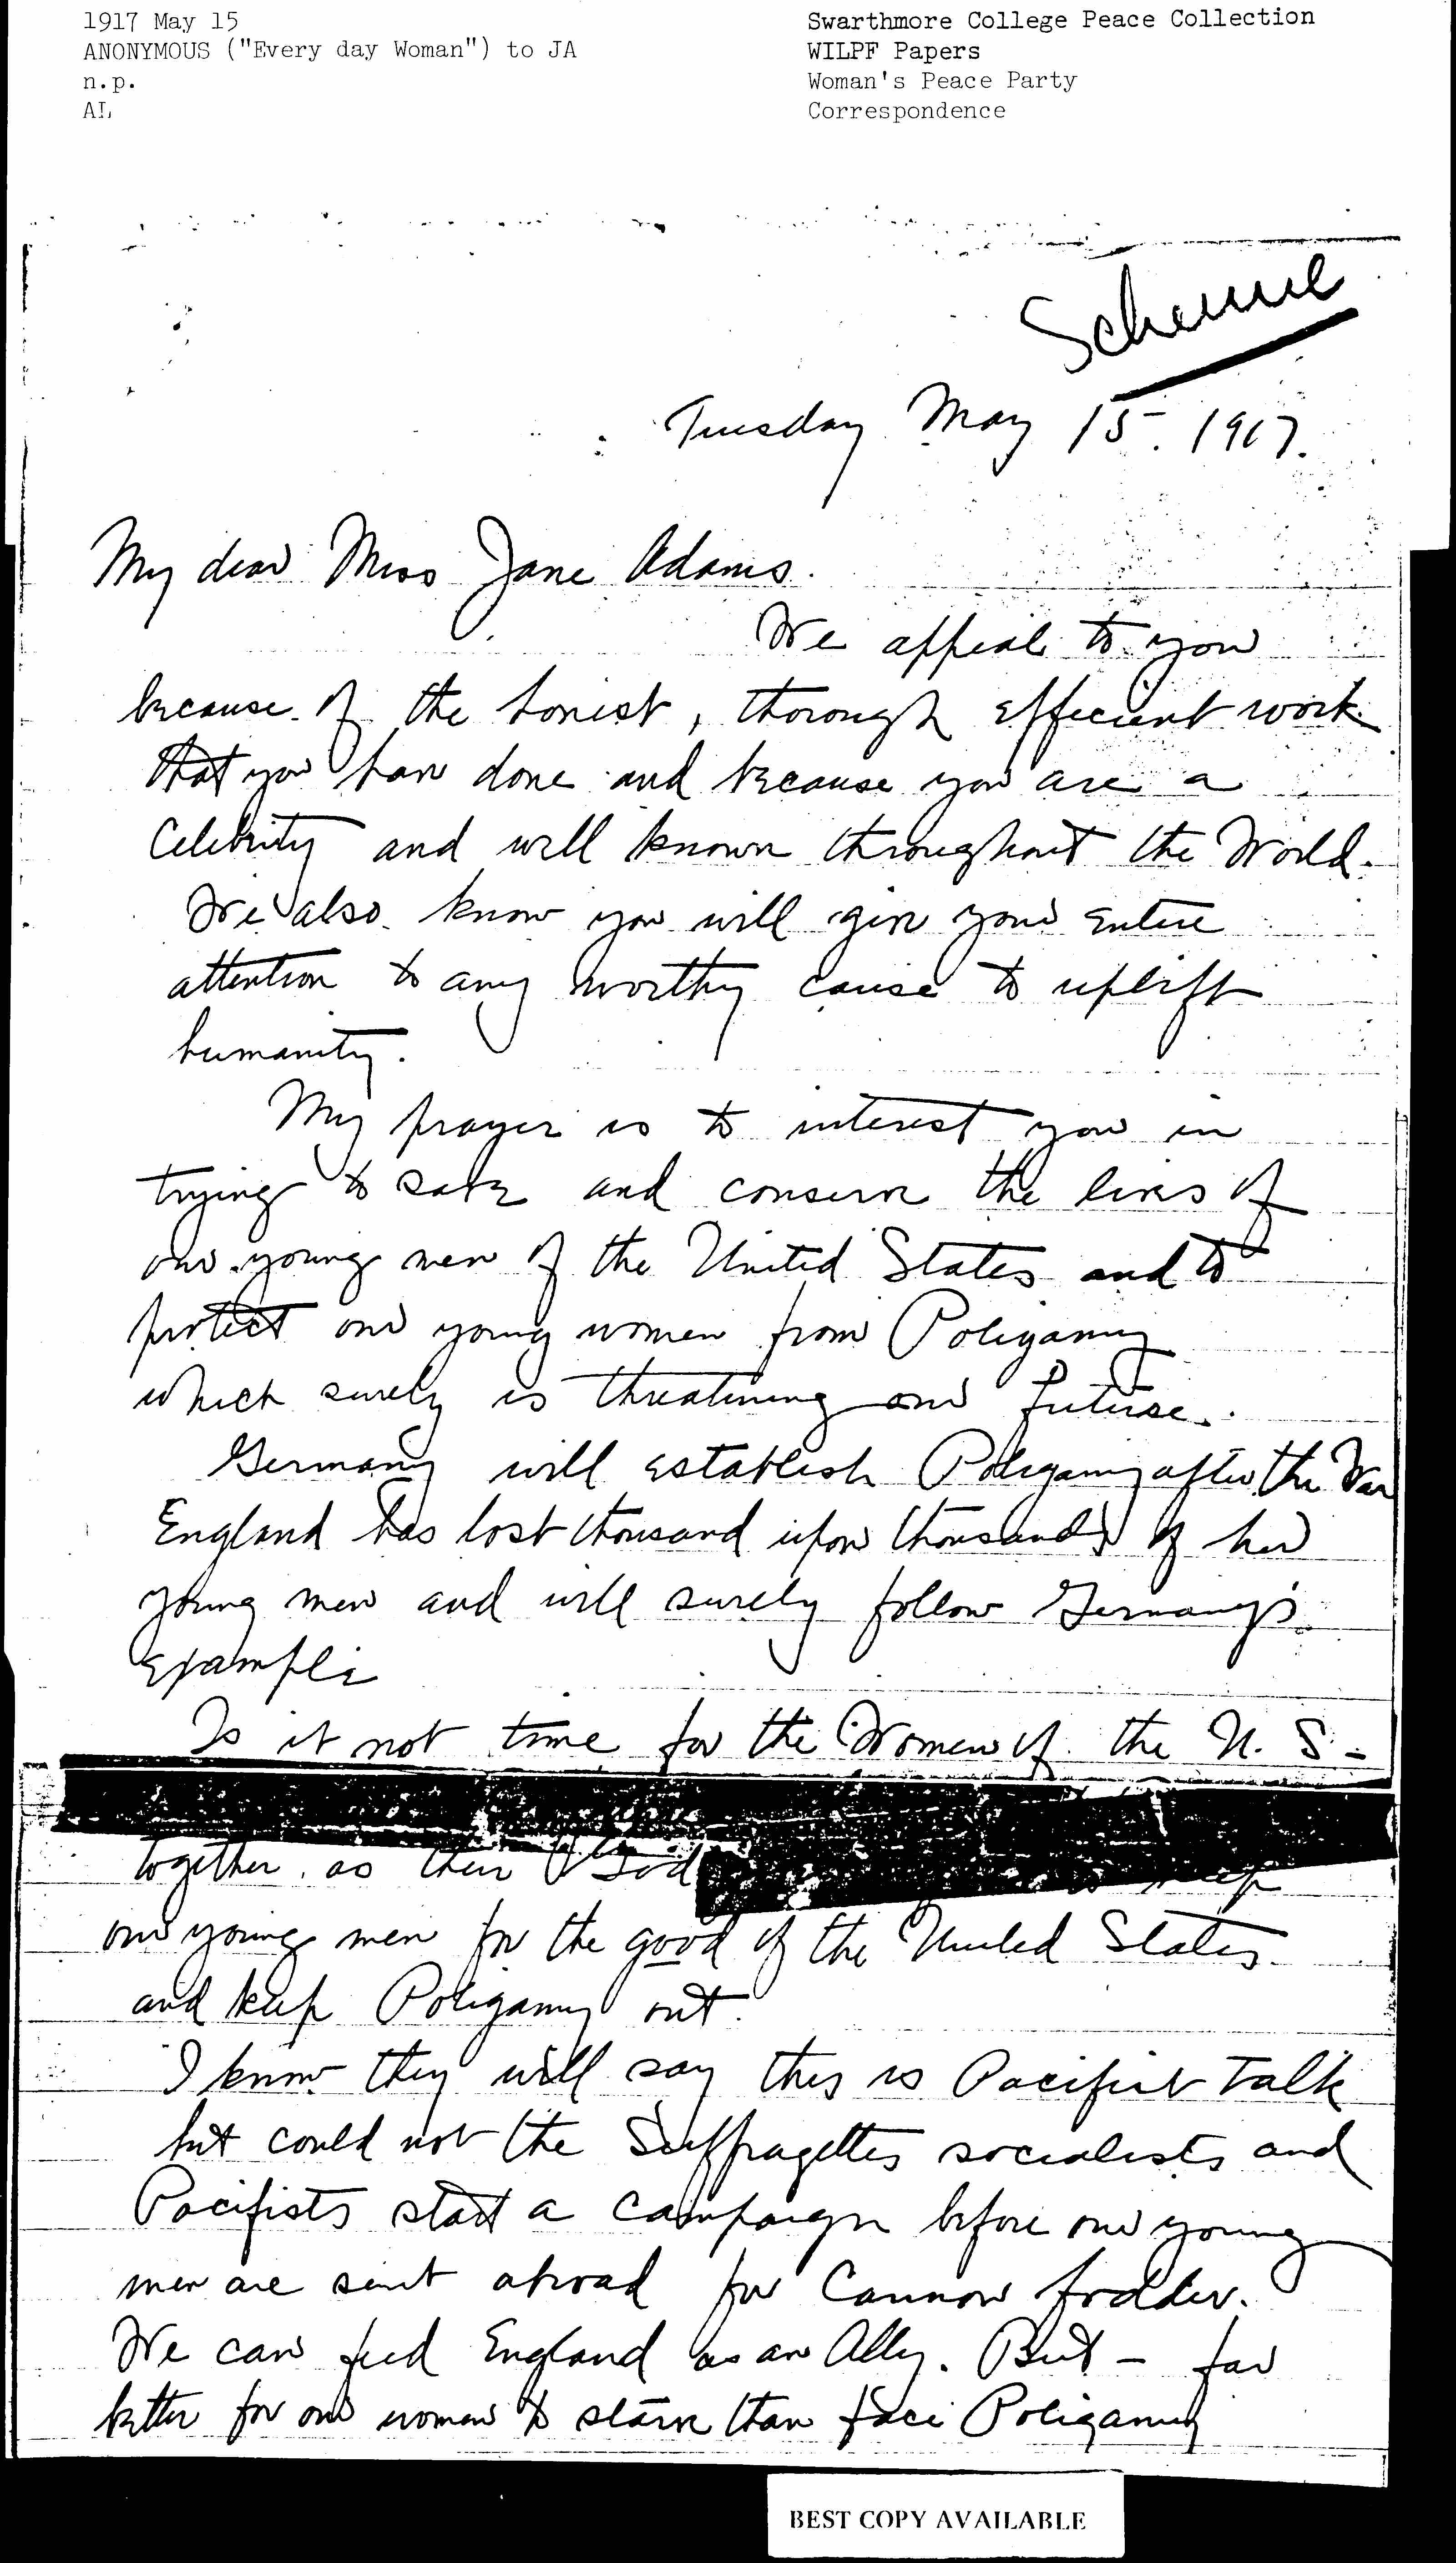 1917 May 15
ANONYMOUS ("Every day Woman") to JA
n.p.
AL
Swarthmore College Peace Collection
WILPF Papers
Woman's Peace Party
Correspondence
Scheme
Tuesday May 15. 1917.
My dear Miss Jane Adams.
We appeal to you
because of the honest, thorough efficient work
that you have done and because you are a
Celebrity and well known throughout the World.
We also know you will give your entire
attention to any worthy cause to uplift
humanity.
My prayer is to interest you in
trying to save and conserve the lives of
our young men of the United States and to
protect our young women from Poligamy
which surely is threatening our future.
Germany will establish Poligamy after the War
England has lost thousand upon thousands of her
young men and will surely follow Germany's
Example
Is it not time for the Women of the U. S -
together as their God keep
our young men for the good of the United States
and keep Poligamy out.
I know they will say this is Pacifist talk
but could not the Suffragettes socialists and
Pacifists start a campaign before our young
men are sent abroad for Cannon fodder.
We can feed England as an Ally. But - far
better for our women to starve than face Poligamy
BEST COPY AVAILABLE